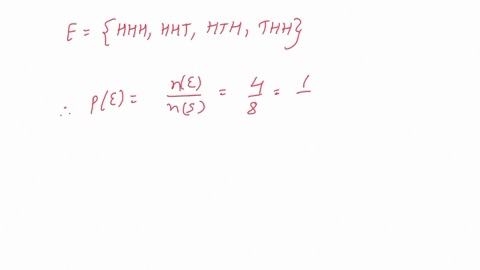 E = {HHH, HHT, HTH, THH}
∴ P(E) = n(E)/n(S) = 4/8 = 1/